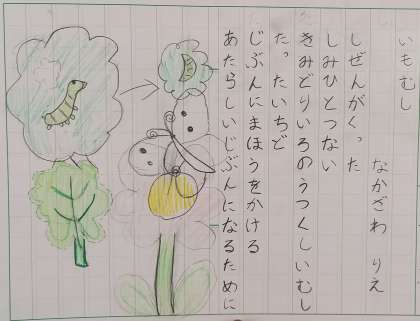 いもむし
なかざわ りえ
しぜんがく。た
しみひとつない
きみどりいろのうつくしいむし
た。たいちど
じぶんにまほうをかける
あたらしいじぶんになるために